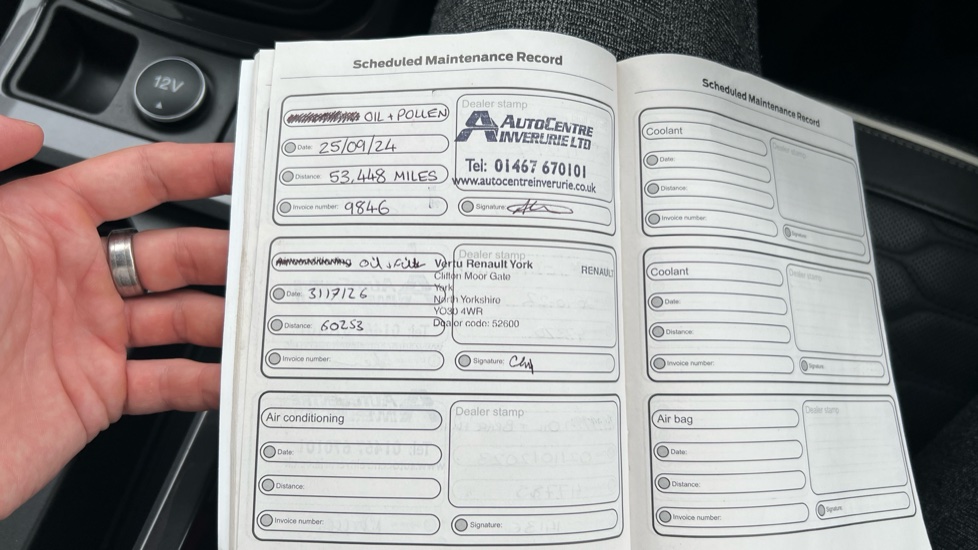 12V
Scheduled Maintenance Record
OIL + POLLEN
Date: 25/09/24
Distance: 53,448 MILES
Invoice number: 9846
Dealer stamp
AUTOCENTRE
INVERURIE LTD
Tel: 01467 670101
www.autocentreinverurie.co.uk
Signature:
Oil
Date: 31/7/26
Distance: 60253
Invoice number:
Dealer stamp
Vertu Renault York
RENAULT
Clifton Moor Gate
York
North Yorkshire
YO30 4WR
Dealor code: 52600
Signature:
Air conditioning
Date:
Distance:
Invoice number:
Dealer stamp
Signature:
Scheduled Maintenance Record
Coolant
Date:
Distance:
Invoice number:
Dealer stamp
Signature:
Coolant
Date:
Distance:
Invoice number:
Dealer stamp
Signature:
Air bag
Date:
Distance:
Invoice number:
Dealer stamp
Signature: